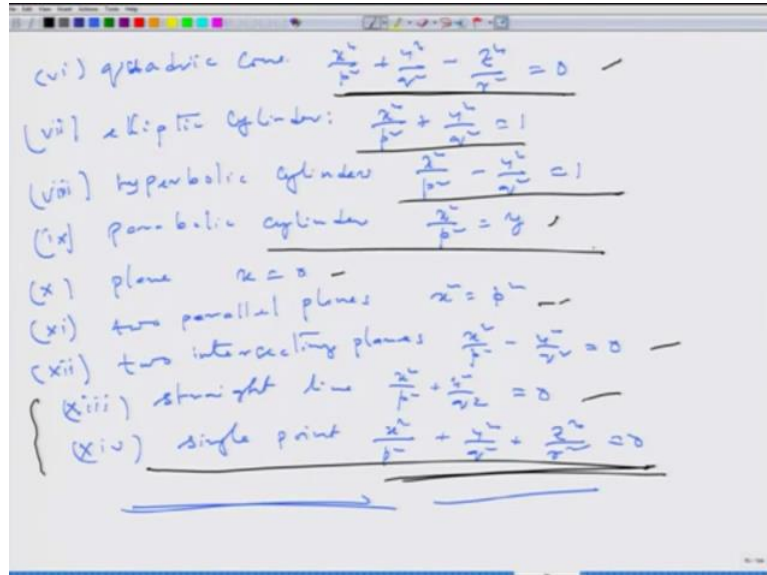 (vi) quadric cone. x²/p² + y²/q² - z²/r² = 0
(vii) elliptic cylinder: x²/p² + y²/q² = 1
(viii) hyperbolic cylinder x²/p² - y²/q² = 1
(ix) parabolic cylinder x²/p² = y
(x) plane x = 0
(xi) two parallel planes x² = p²
(xii) two intersecting planes x²/p² - y²/q² = 0
(xiii) straight line x²/p² + y²/q² = 0
(xiv) single point x²/p² + y²/q² + z²/r² = 0